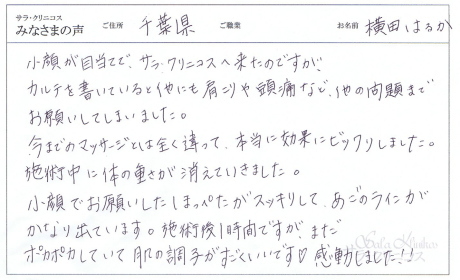 サラ・クリニコス
みなさまの声 ご住所 千葉県 ご職業 お名前 横田はるか
小顔が目当てで、サラ・クリニコスへ来たのですが、
カルテを書いていると他にも肩こりや頭痛など、他の問題まで
お願いしてしまいました。
今までのマッサージとは全く違って、本当に効果にビックリしました。
施術中に体の重さが消えていきました。
小顔でお願いしたしほっぺたがスッキリして、あごのラインが
かなり出ています。施術後1時間ですが、まだ
ポカポカしていて肌の調子がすごくいいです♡ 感動しました!!